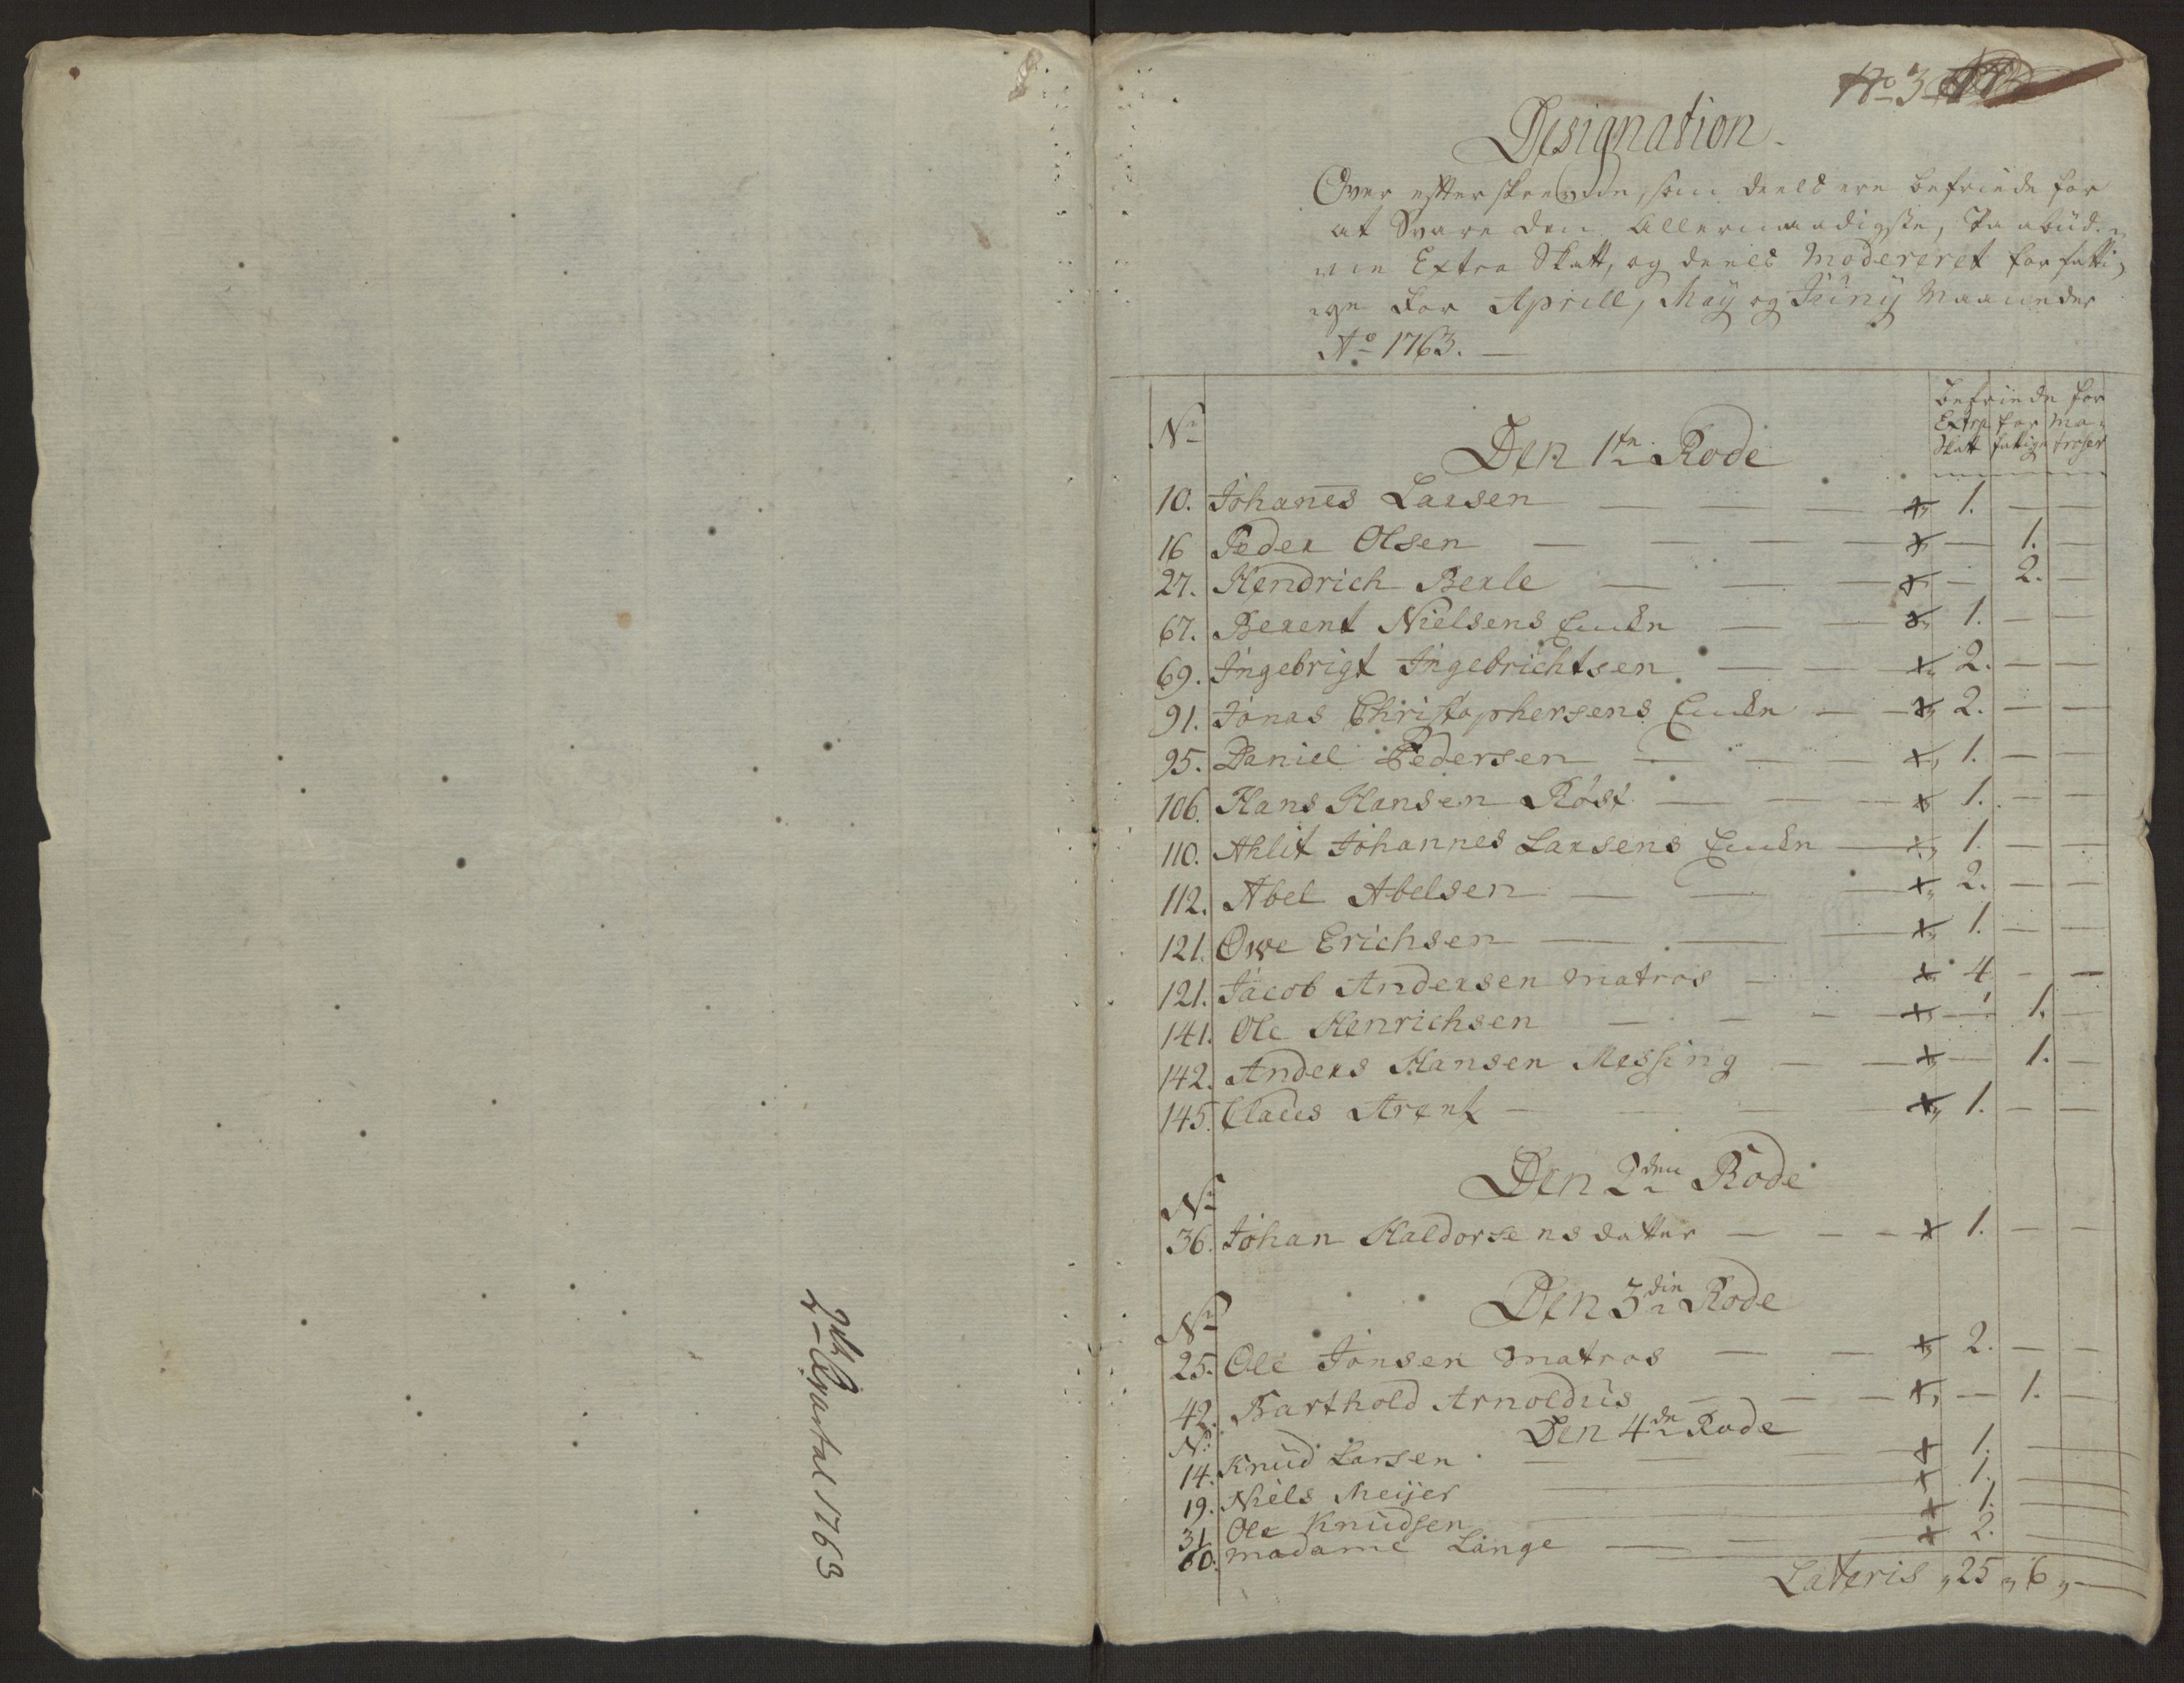 2de Qvartal 1763
No 3
Designation.
Over efterskrevne, som deels ere befriede for
at Svare den Allernaadigste, Paabud-
ne Extra Skatt, og deels Modereret for fatti-
ge for Aprill, May og Juny Maaneder
Ao 1763. —
befriede for
Extra for Ma-
No Skatt fattige troser
Den 1te Rode
10. Johanes Larsen — — — 1. — —
16 Peder Olsen — — — — 1. —
27. Hendrich Berle — — — — 2. —
67. Berent Nielsens Encke — — 1. — —
69. Ingebrigt Ingebrichtsen — — 2. — —
91. Jonas Christophersens Encke — — 2. — —
95. Daniel Pedersen — — — 1. — —
106. Hans Hansen Röst — — — 1. — —
110. Ahlit Johannes Larsens Encke — 1. — —
112. Abel Abelsen — — — 2. — —
121. Owe Erichsen — — — 1. — —
121. Jacob Andersen matros — 4 — —
141. Ole Henrichsen — — — — — 1. —
142. Anders Hansen Messing — — — 1. —
145. Claus Arent — — — 1. — —
Den 2den Rode
No
36. Johan Haldorsens datter — — — 1. — —
Den 3die Rode
No
25. Ole Jonsen matros — — 2. — —
42. Barthold Arnoldus — — — — 1. —
No Den 4de Rode
14. Knud Larsen — — — 1. —
19. Niels Meijer — 1. —
31 Ole Knudsen — 1. —
60. madame Lange — — 2. —
Lateris „ 25 „ 6 „ —